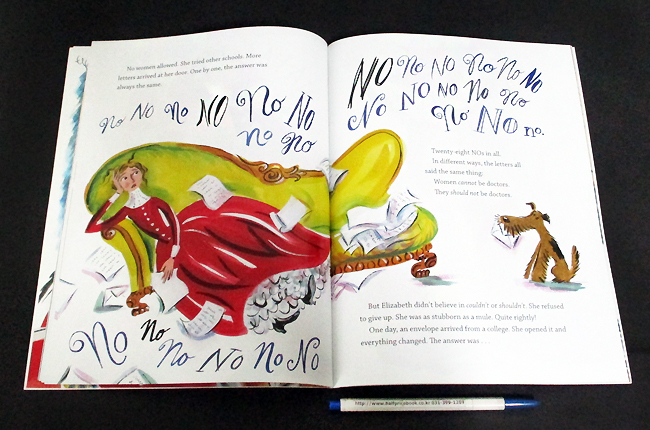 No women allowed. She tried other schools. More
letters arrived at her door. One by one, the answer was
always the same.
no No no NO No No
no No
No No
No No No No
NO No NO No No NO
No NO NO No No
No NO no.
Twenty-eight NOs in all.
In different ways, the letters all
said the same thing.
Women cannot be doctors.
They should not be doctors.
But Elizabeth didn't believe in couldn't or shouldn't. She refused
to give up. She was as stubborn as a mule. Quite rightly!
One day, an envelope arrived from a college. She opened it and
everything changed. The answer was . . .